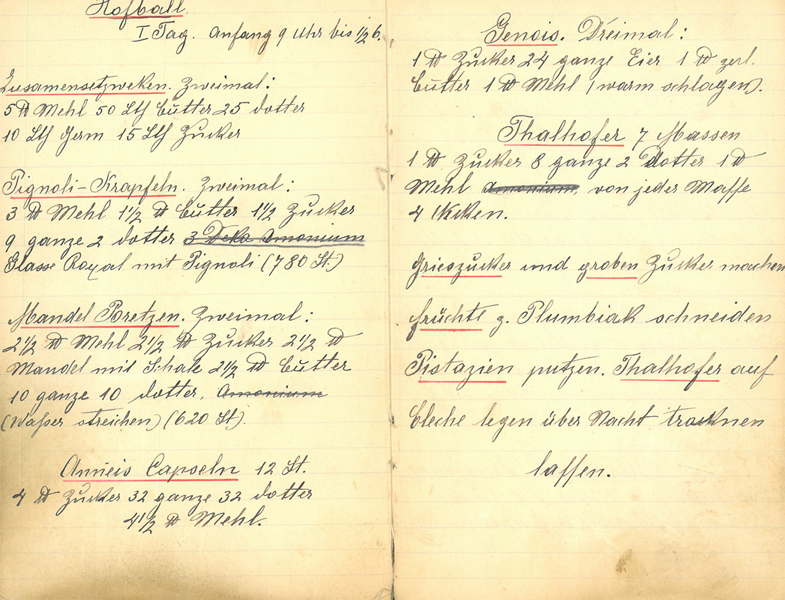 Hofball.
I Tag. Anfang 9 Uhr bis ½6.
Zusamensetzweken. Zweimal:
5 ℔ Mehl 50 Lth Butter 25 dotter
10 Lth Germ 15 Lth Zucker
Pignoli-Krapfeln. Zweimal:
3 ℔ Mehl 1½ ℔ Butter 1½ Zucker
9 ganze 2 dotter 3 Deka Amonium
Glasse Royal mit Pignoli (780 St.)
Mandel Bretzen. Zweimal:
2½ ℔ Mehl 2½ ℔ Zucker 2½ ℔
Mandel mit Schale 2½ ℔ Butter
10 ganze 10 dotter. Amonium
(Waßer streichen) (620 St).
Anneis Capseln 12 St.
4 ℔ Zucker 32 ganze 32 dotter
4½ ℔ Mehl.
Genois. Dreimal:
1 ℔ Zucker 24 ganze Eier 1 ℔ zerl.
Butter 1 ℔ Mehl (warm schlagen).
Thalhofer 7 Massen
1 ℔ Zucker 8 ganze 2 dotter 1 ℔
Mehl Amonium von jeder Maße
4 Kisten.
Grieszucker und groben Zucker machen
früchte z. Plumbiak schneiden
Pistazien putzen. Thalhofer auf
Bleche legen über Nacht trocknen
laßen.